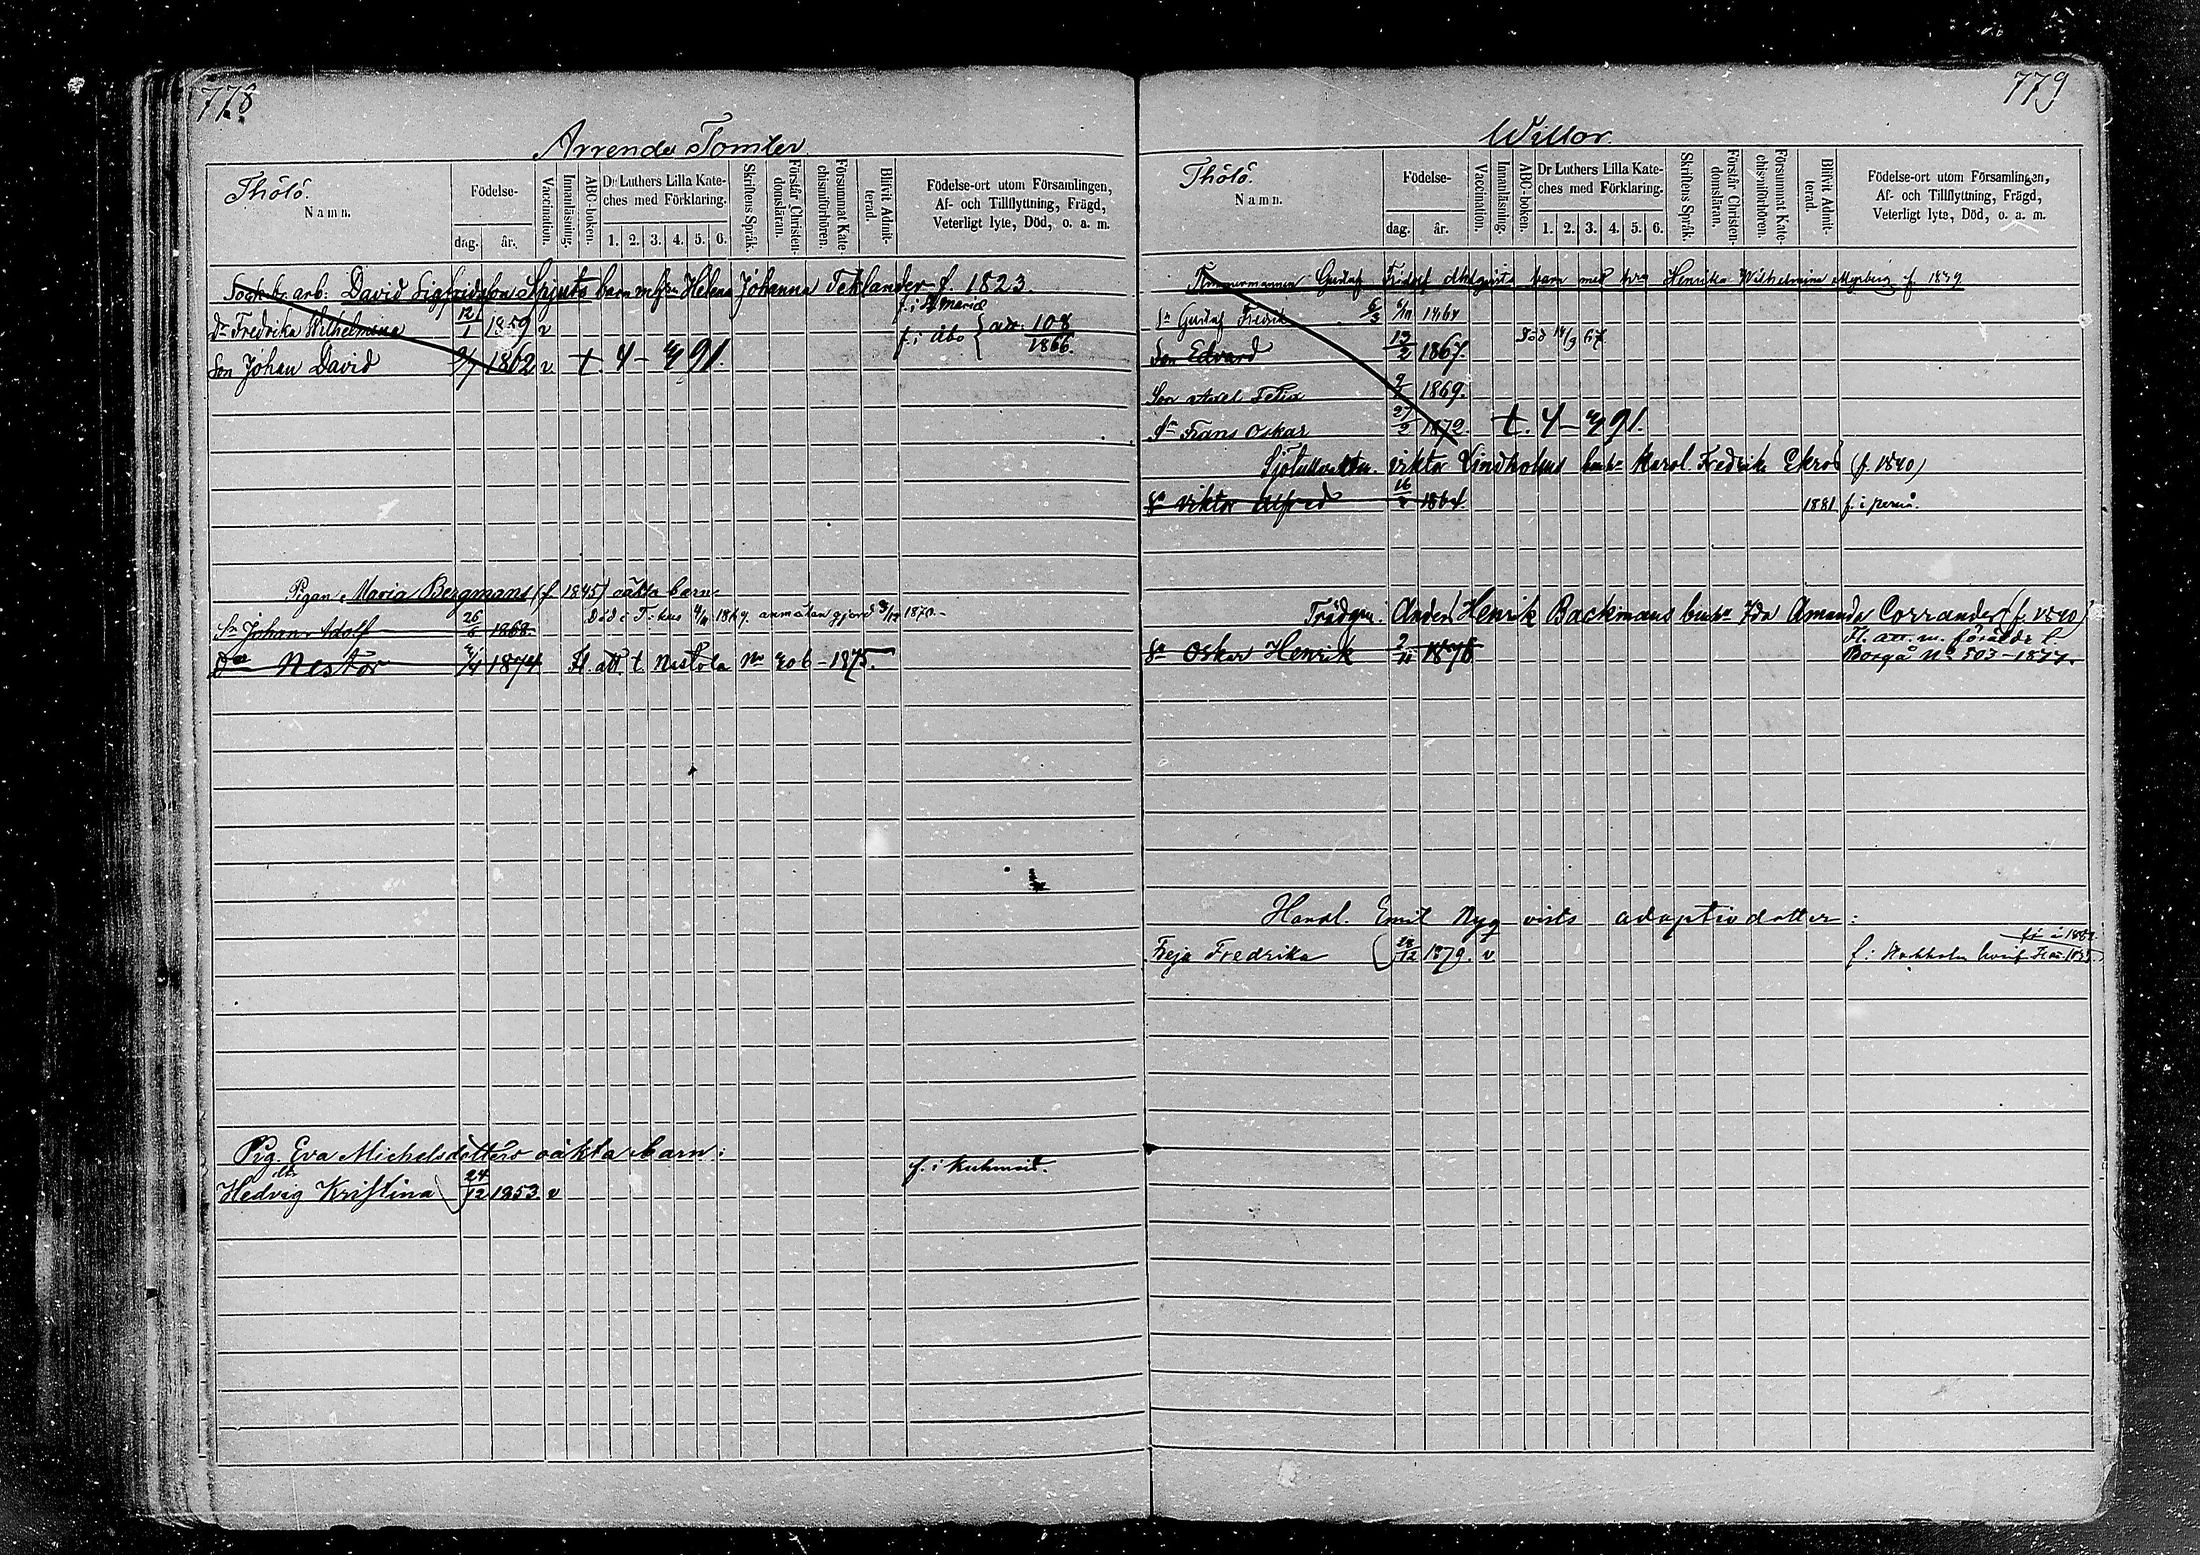 778
Arrende Tomter
Thölö.
Namn.
Födelse-
dag. år.
Vaccination.
Innanläsning.
ABC-boken.
Dr Luthers Lilla Kate-
ches med Förklaring.
1. 2. 3. 4. 5. 6.
Skriftens Språk.
Förstår Christen-
domsläran.
Försummat Kate-
chismiförhören.
Blifvit Admit-
terad.
Födelse-ort utom Församlingen,
Af- och Tillflyttning, Frägd,
Veterligt lyte, Död, o. a. m.
arb: David Sigfridsson Spjuts barn m. Helena Johanna Teklander f. 1823
f. i St Mariæ
Dr Fredrika Wilhelmina 12/1 1859 v
f. i Åbo 108/1866.
Son Johan David 9/7 1862 v
Pigan Maria Bergmans (f 1845) oäkta barn
Sn Johan Adolf 26/6 1868. Död i T. hus 1869. anmälan gjord 1870.
Nestor 1874 Fl. att. t. Nastola No 206 - 1875.
Pig. Eva Michelsdotters oäkta barn:
dtr
f. i Kuhmois.
Hedvig Kristina 24/12 1853. v
779
Willor.
Thölö.
Namn.
Födelse-
dag. år.
Vaccination.
Innanläsning.
ABC-boken.
Dr Luthers Lilla Kate-
ches med Förklaring.
1. 2. 3. 4. 5. 6.
Skriftens Språk.
Förstår Christen-
domsläran.
Försummat Kate-
chismiförhören.
Blifvit Admit-
terad.
Födelse-ort utom Församlingen,
Af- och Tillflyttning, Frägd,
Veterligt lyte, Död, o. a. m.
Timmermannen Gustaf Fridolf barn med Henrika Wilhelmina Myrberg f. 1839
Sn Gustaf Fredrik
Son Edvard 1867. Död 14/9 67
Son Axel Felix 1869.
Sn Frans Oskar 27/2 1872.
Viktor Lindholms barn Karol. Fredrika Ekroos (f. 1840)
Sn Viktor Alfred 1864. 1881 f. i Pernå.
Trädgm. Anders Henrik Backmans barn Ida Amanda Corrander (f. 1840)
Fl. att. m. föräldr t.
Sn Oskar Henrik Borgå No 503-1877.
Handl. Emil Nyqvists adoptivdotter:
Freja Fredrika 28/12 1879. v f. i Stockholm